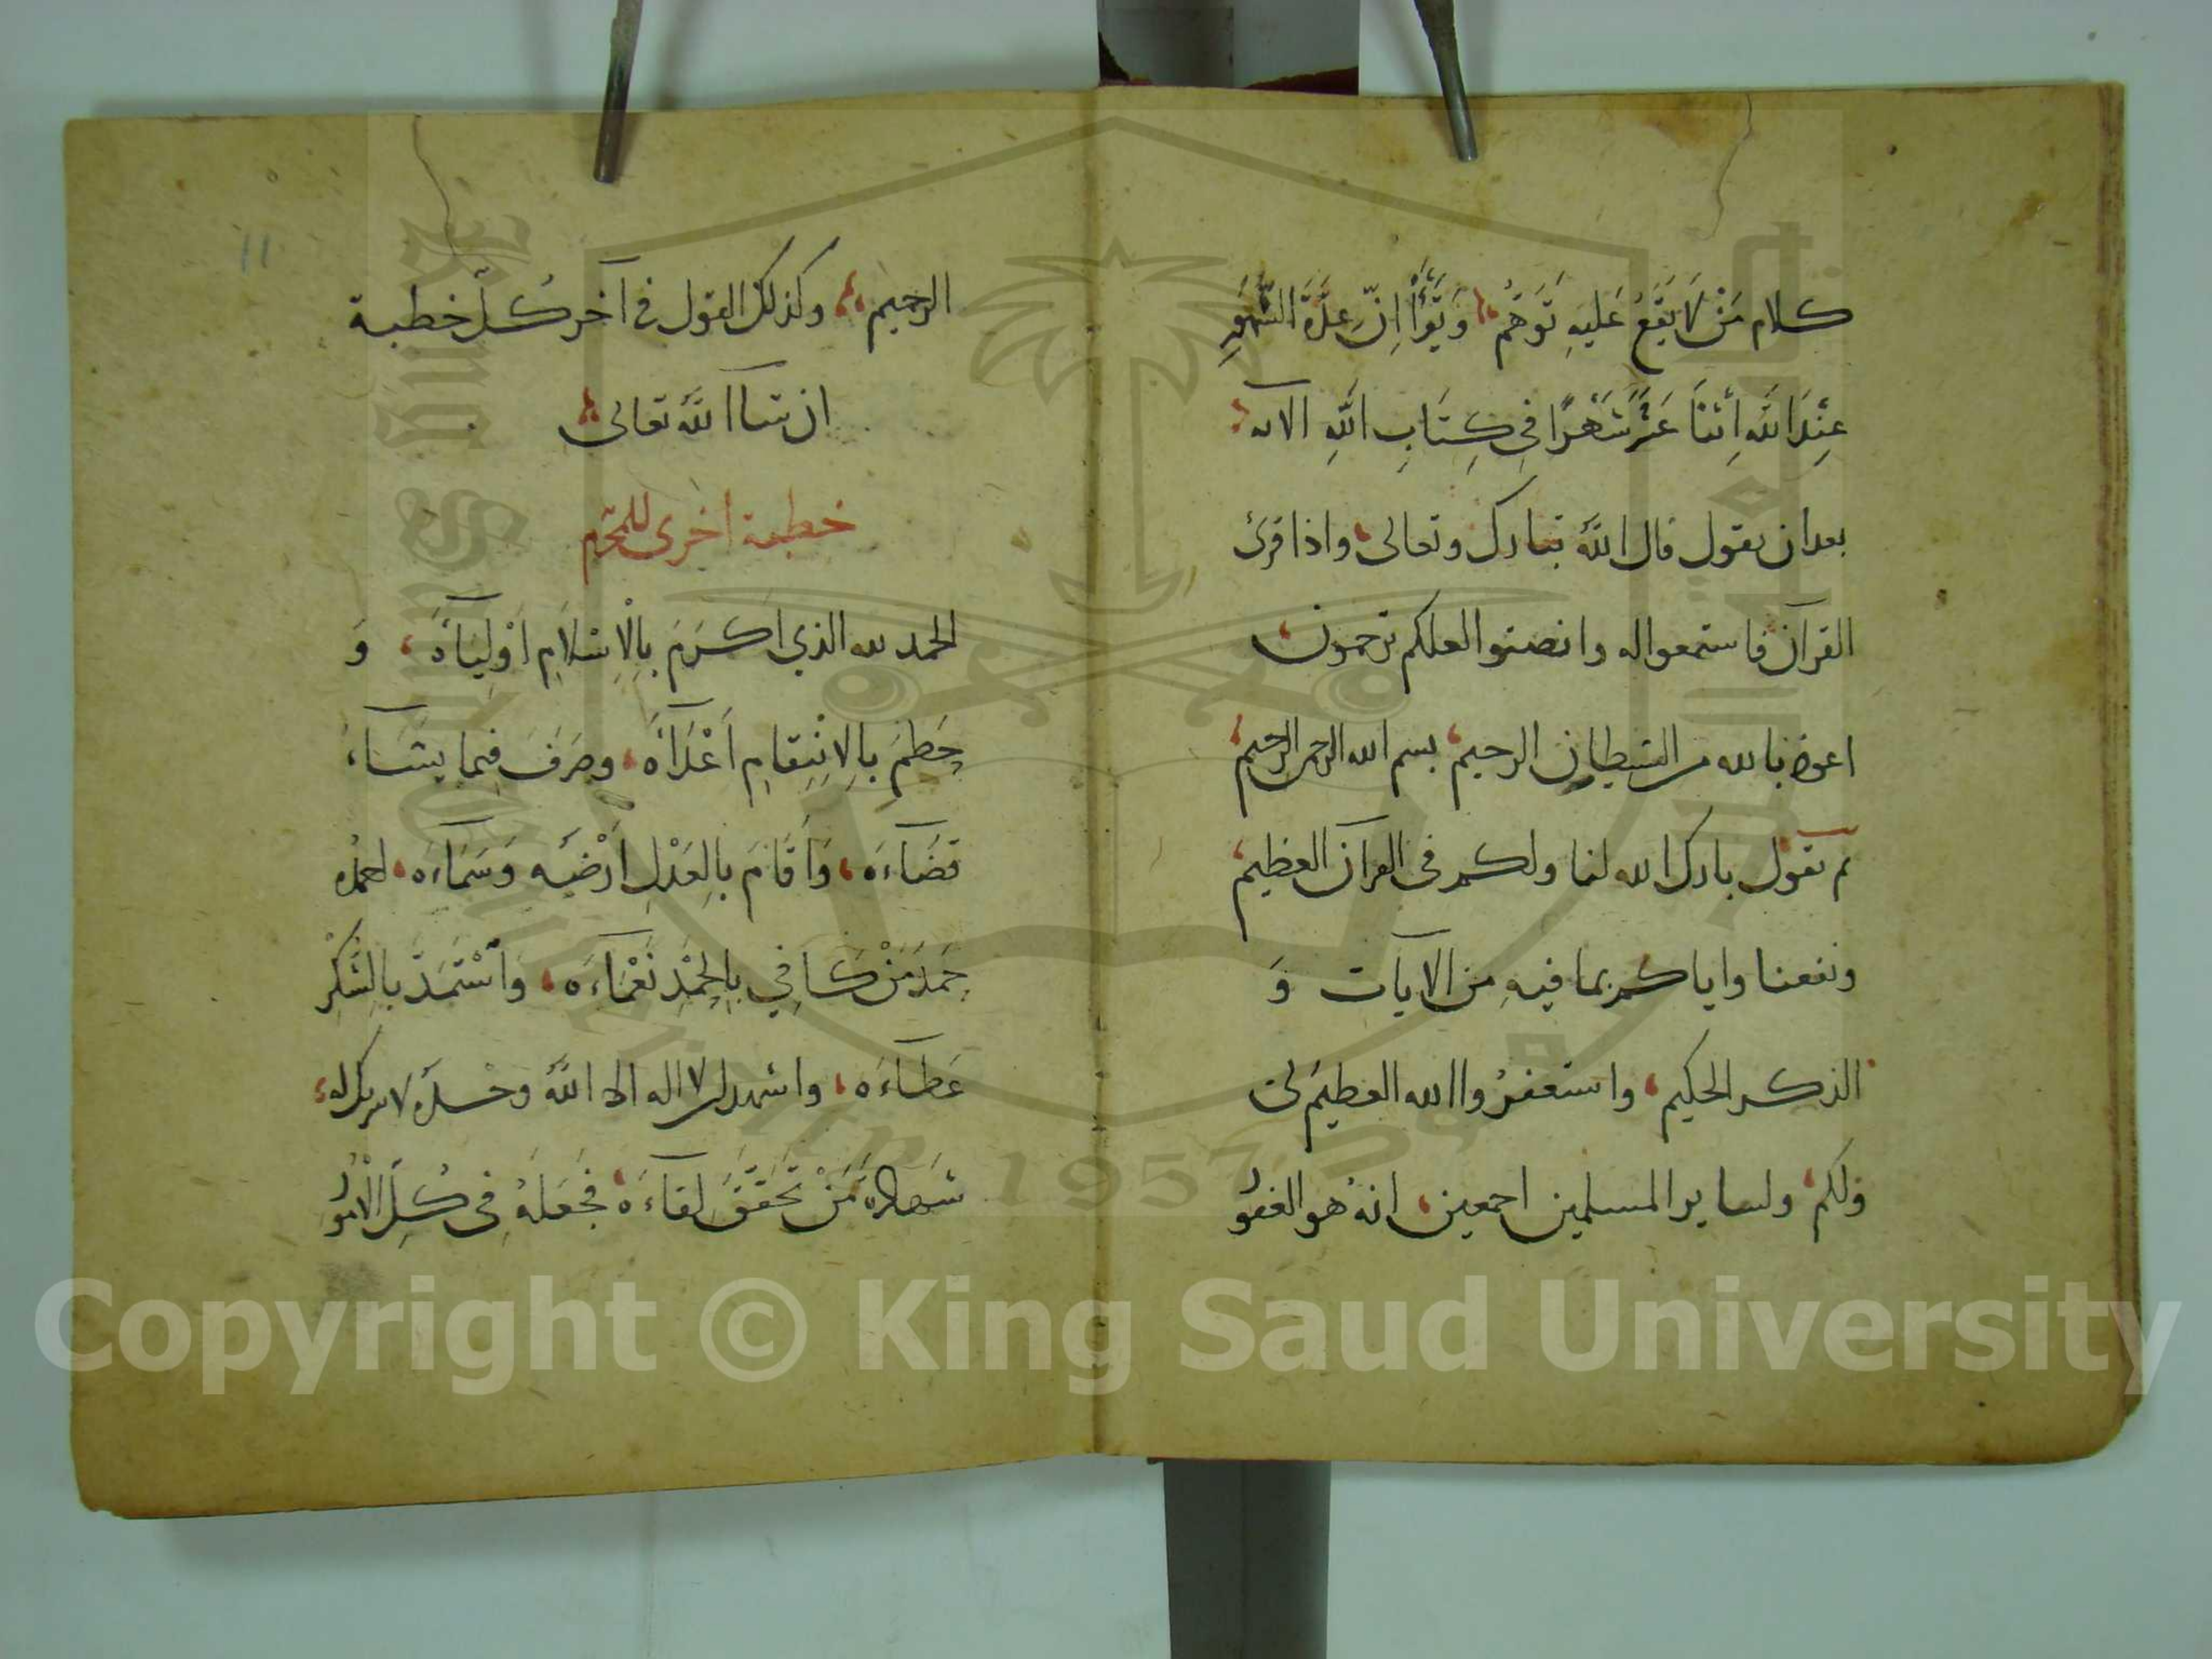 كلام مَنْ لَا يَقَعُ عَلَيهِ تَوَهُّمٌ وَيَقْرَأُ اِنَّ عِدَّةَ الشُّهُورِ
عِنْدَ اللَّهِ اِثْنَا عَشَرَ شَهْرًا فِي كِتَابِ اللَّهِ الايه
بعد ان يقول قال اللَّه تبارك وتعالى واذا قرئ
القرآن فاستمعوا له وانصتوا لعلكم ترحمون
اعوذ بالله من الشيطان الرجيم بسم الله الرحمن الرحيم
ثم يقول بارك الله لنا ولكم في القرآن العظيم
ونفعنا واياكم بما فيهِ من الآيات وَ
الذكر الحكيم واستغفرُوا الله العظيم لى
ولكم ولساير المسلمين اجمعين انهُ هو الغفور
١١
الرحيم وكذلك القول في آخر كُلّ خطبة
ان شاا للَّه تعالى
خطبة اخرى للمحرّم
الحمد لله الذي اَكْرَمَ بِالْاِسْلَامِ اَوْلِيَآءَهُ وَ
حَطَمَ بِالِانْتِقَامِ اَعْدَآءَهُ وصَرَفَ فيما يشَآءُ
قَضَآءَهُ وَاَقَامَ بِالعَدْلِ اَرْضَه وَسَمَآءَه احمدُه
حَمْدَ مَنْ كَافِي بِالحَمْدِ نَعْمَآءَه وَاسْتَمَدَّ بِالشُّكْرِ
عَطَآءَه واشهد ان لا اله الا اللَّهُ وحْدَهُ لا شريك له
شَهادةَ مَنْ تَحَقَّقَ لِقَآءَه فَجَعَلَهُ فِي كُلِّ الْاُمُورِ
Copyright © King Saud University
1957